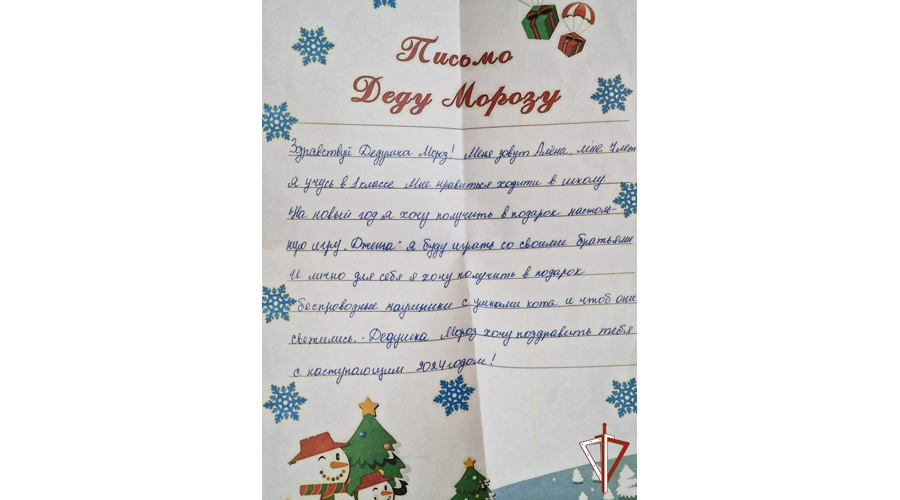 Письмо
Деду Морозу
Здравствуй Дедушка Мороз! Меня зовут Алёна, мне 7 лет
я учусь в 1 классе Мне нравиться ходити в школу.
На новый год я хочу получить в подарок настоль-
ную игру "Дженга" я буду играть со своими братьями
И лично для себя я хочу получить в подарок
беспроводные наушники с ушками кота и чтоб они
светились. Дедушка Мороз хочу поздравить тебя
с наступающим 2024 годом!